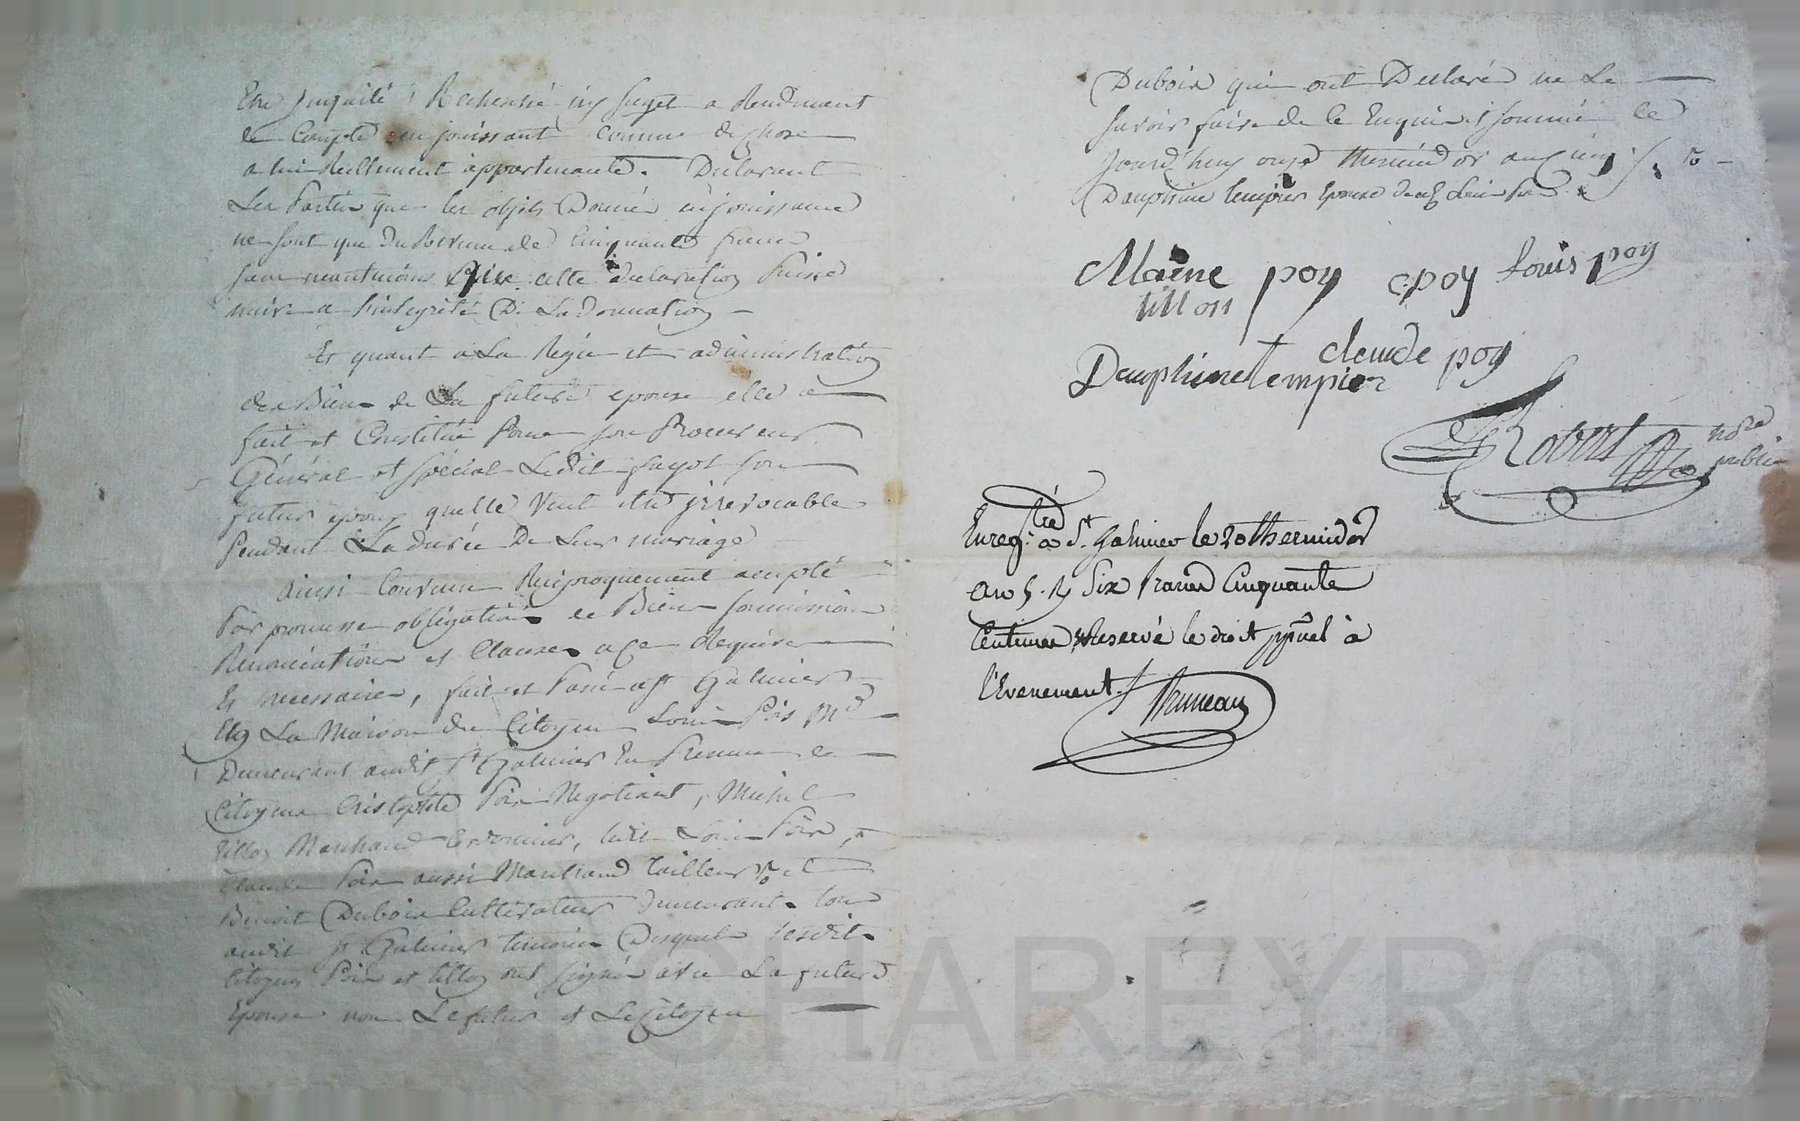 Etre inquieté Recherché ny suget a Rendument
de Compte en jouissant comme de chose
a lui Reellement appartenante. Declarant
Les Parties que les objets Donnés en jouissance
ne sont que du Revenu de Cinquante francs
sans neantmoins que cette declaration Puisse
nuire a l'integrité De La donnation
Et quant a La Regie et administration
des Biens de La future epouse elle a
fait et Constitué Pour son Procureur
Général et spécial Ledit fayot son
futur epoux quelle Veut etre jrrevocable
Pendant La durée De Leur mariage
Ainsi Convenu Reciproquement accepté
Par promesse obligation de Biens soumissions
Renonciations et Clauses a ce Requise
Et necessaires, fait et Passé a St Galmier
En La Maison du Citoyen Louis Pois Md
Demeurant audit St Galmier En Presence de
Citoyens Cristophle Poix Negotiant, Michel
tillon Marchand Cordonnier, ledit Louis Poix,
Claude Poix aussi Marchand Tailleur et
Benoit Dubois Cultivateur demeurants tous
audit St Galmier temoins Desquels lesdits
Citoyens Poix et tillon ont signé avec La future
Epouse non Le futur et Le Citoyen
Dubois qui ont Declaré ne Le
Savoir faire de ce Enquis et sommés ce
Jourd'huy onze thermidor an cinq
Dauphine tempier Epouse
poy cpoy Louis poy
tillon
claude poy
Dauphine tempier
Robert nore
public
Enregtré a St. Galmier le 20 thermidor
an 5. R Six francs Cinquante
Centimes Reservé le droit ppñel à
l'Evenement.
CHAREYRON